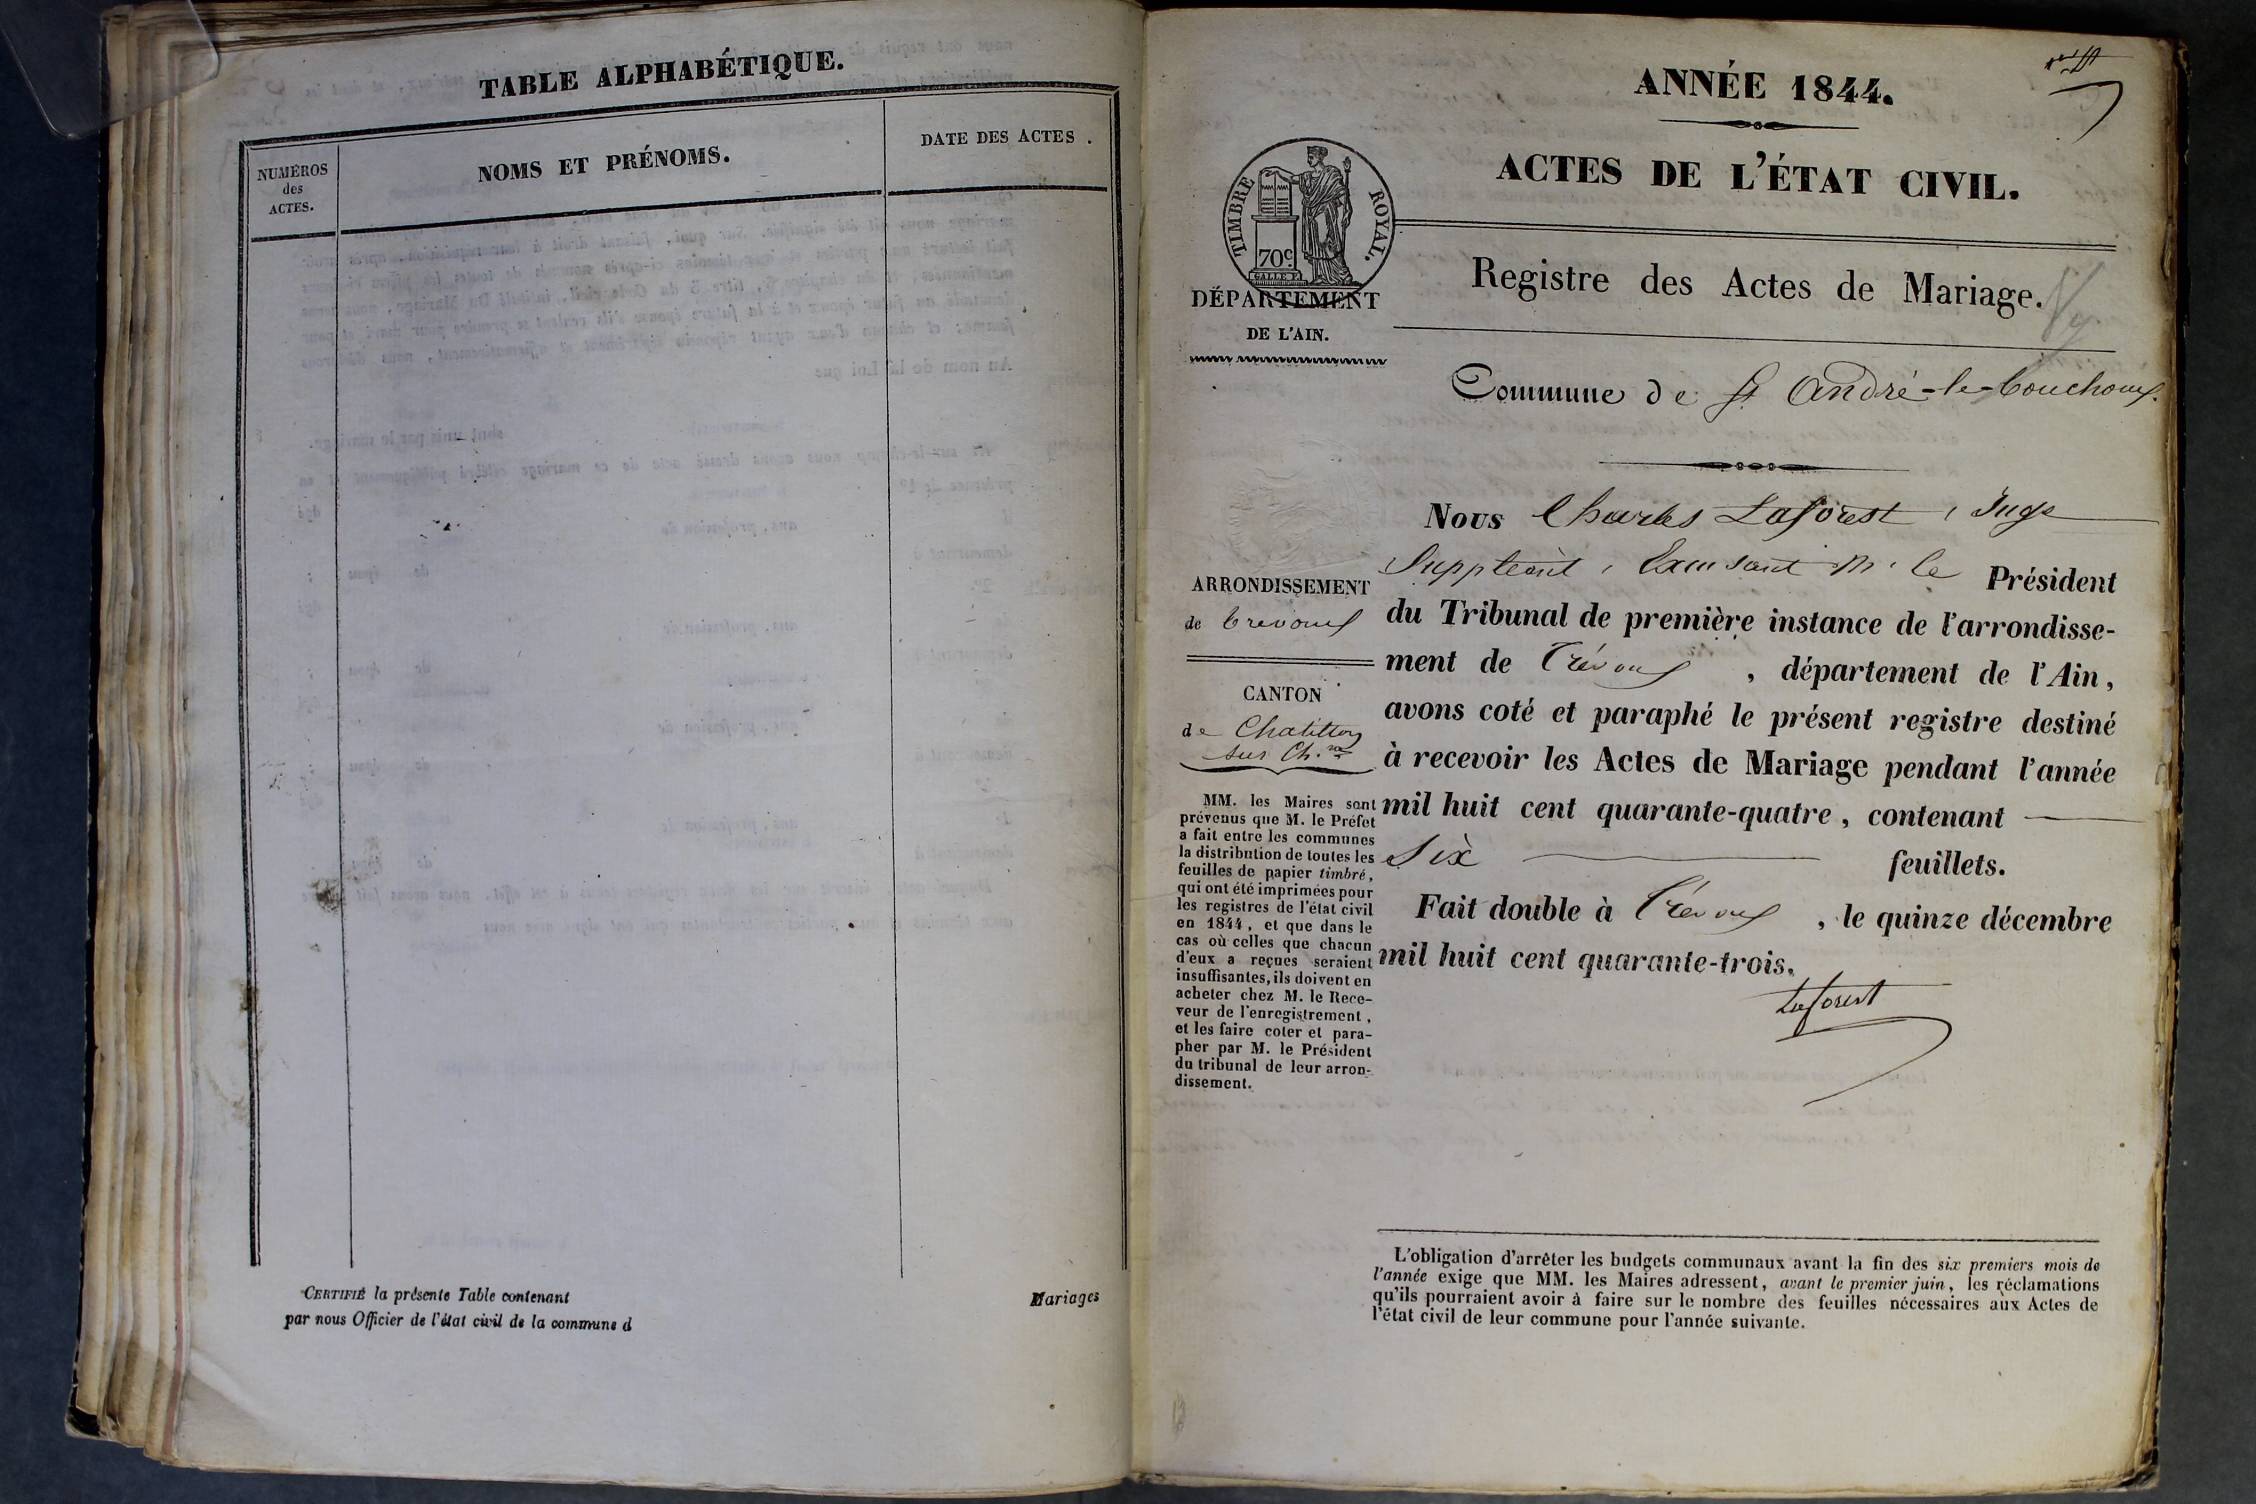 TABLE ALPHABÉTIQUE.
NUMÉROS
des
ACTES.
NOMS ET PRÉNOMS.
DATE DES ACTES .
CERTIFIÉ la présente Table contenant
Mariages
par nous Officier de l'état civil de la commune d
ANNÉE 1844.
ACTES DE L'ÉTAT CIVIL.
TIMBRE ROYAL.
70c.
Registre des Actes de Mariage.
DÉPARTEMENT
DE L'AIN.
Commune de St André-le-bouchoux.
ARRONDISSEMENT
de trevoux
CANTON
de Chatillon
sur Ch.ne
MM. les Maires sont
prévenus que M. le Préfet
a fait entre les communes
la distribution de toutes les
feuilles de papier timbré,
qui ont été imprimées pour
les registres de l'état civil
en 1844, et que dans le
cas où celles que chacun
d'eux a reçues seraient
insuffisantes, ils doivent en
acheter chez M. le Rece-
veur de l'enregistrement,
et les faire coter et para-
pher par M. le Président
du tribunal de leur arron-
dissement.
Nous Charles Laforest, Juge
Suppléant, M. le Président
du Tribunal de première instance de l'arrondisse-
ment de Trévoux, département de l'Ain,
avons coté et paraphé le présent registre destiné
à recevoir les Actes de Mariage pendant l'année
mil huit cent quarante-quatre, contenant
Six feuillets.
Fait double à Trévoux, le quinze décembre
mil huit cent quarante-trois.
Laforest
L'obligation d'arrêter les budgets communaux avant la fin des six premiers mois de
l'année exige que MM. les Maires adressent, avant le premier juin, les réclamations
qu'ils pourraient avoir à faire sur le nombre des feuilles nécessaires aux Actes de
l'état civil de leur commune pour l'année suivante.